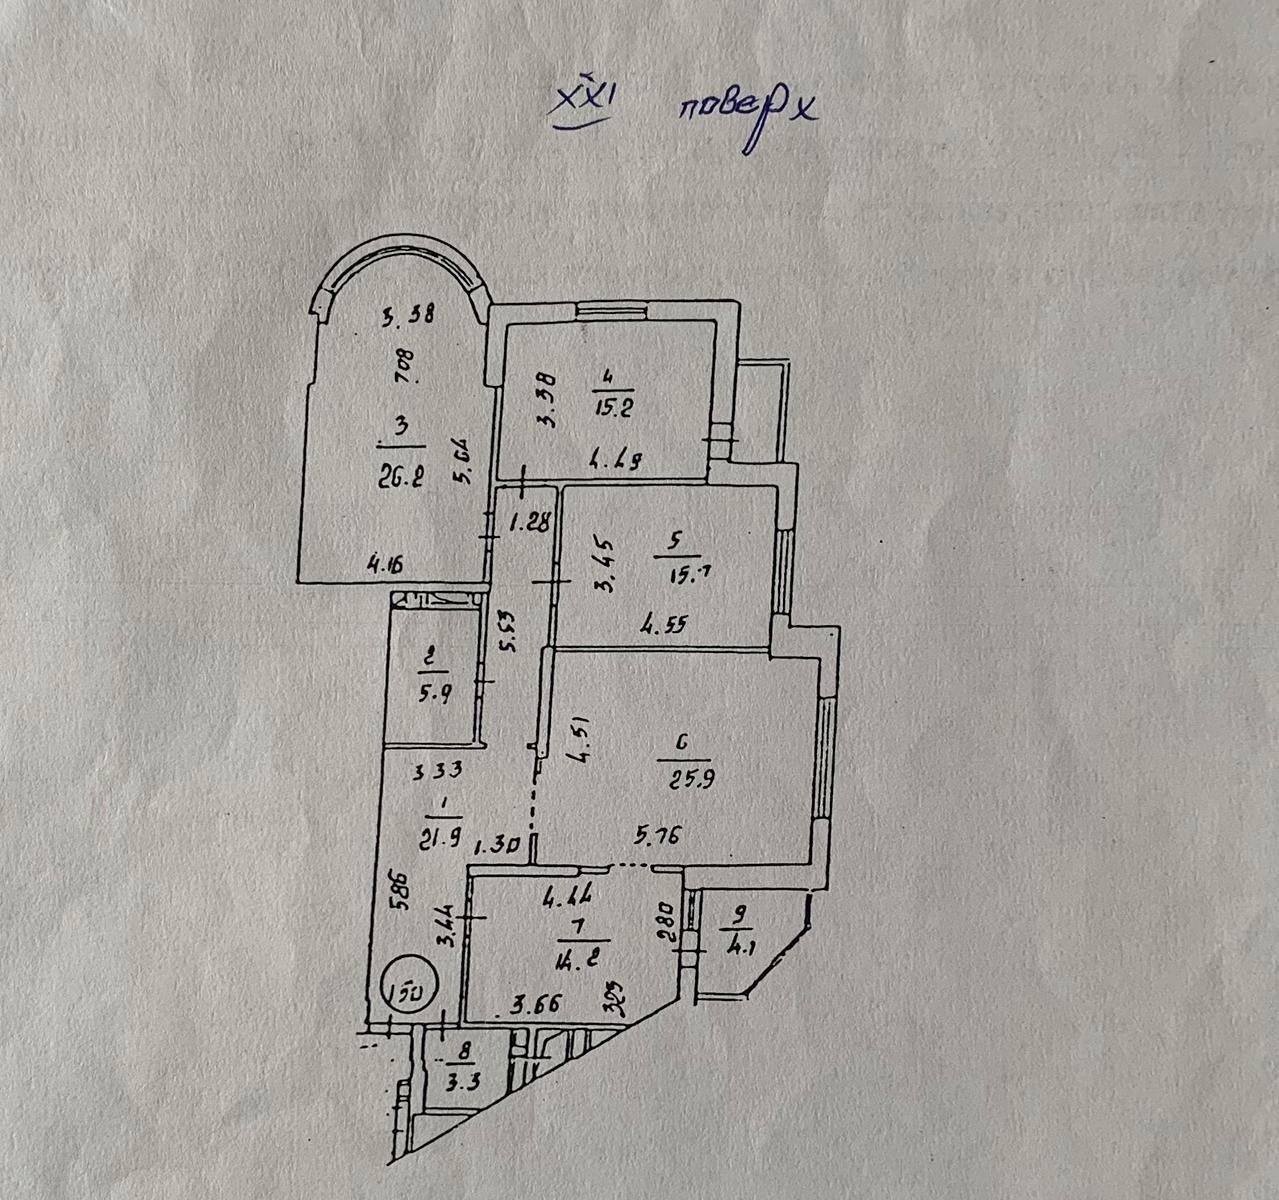 XXI поверх
3.38
708
3.38
4
15.2
3
26.2
5.64
4.49
1.28
4.16
3.45
5
15.7
4.55
5.53
2
5.9
4.51
6
25.9
3 33
1
21.9
1.30
5.76
586
3.44
4.44
7
14.2
280
9
4.1
150
3.66
8
3.3